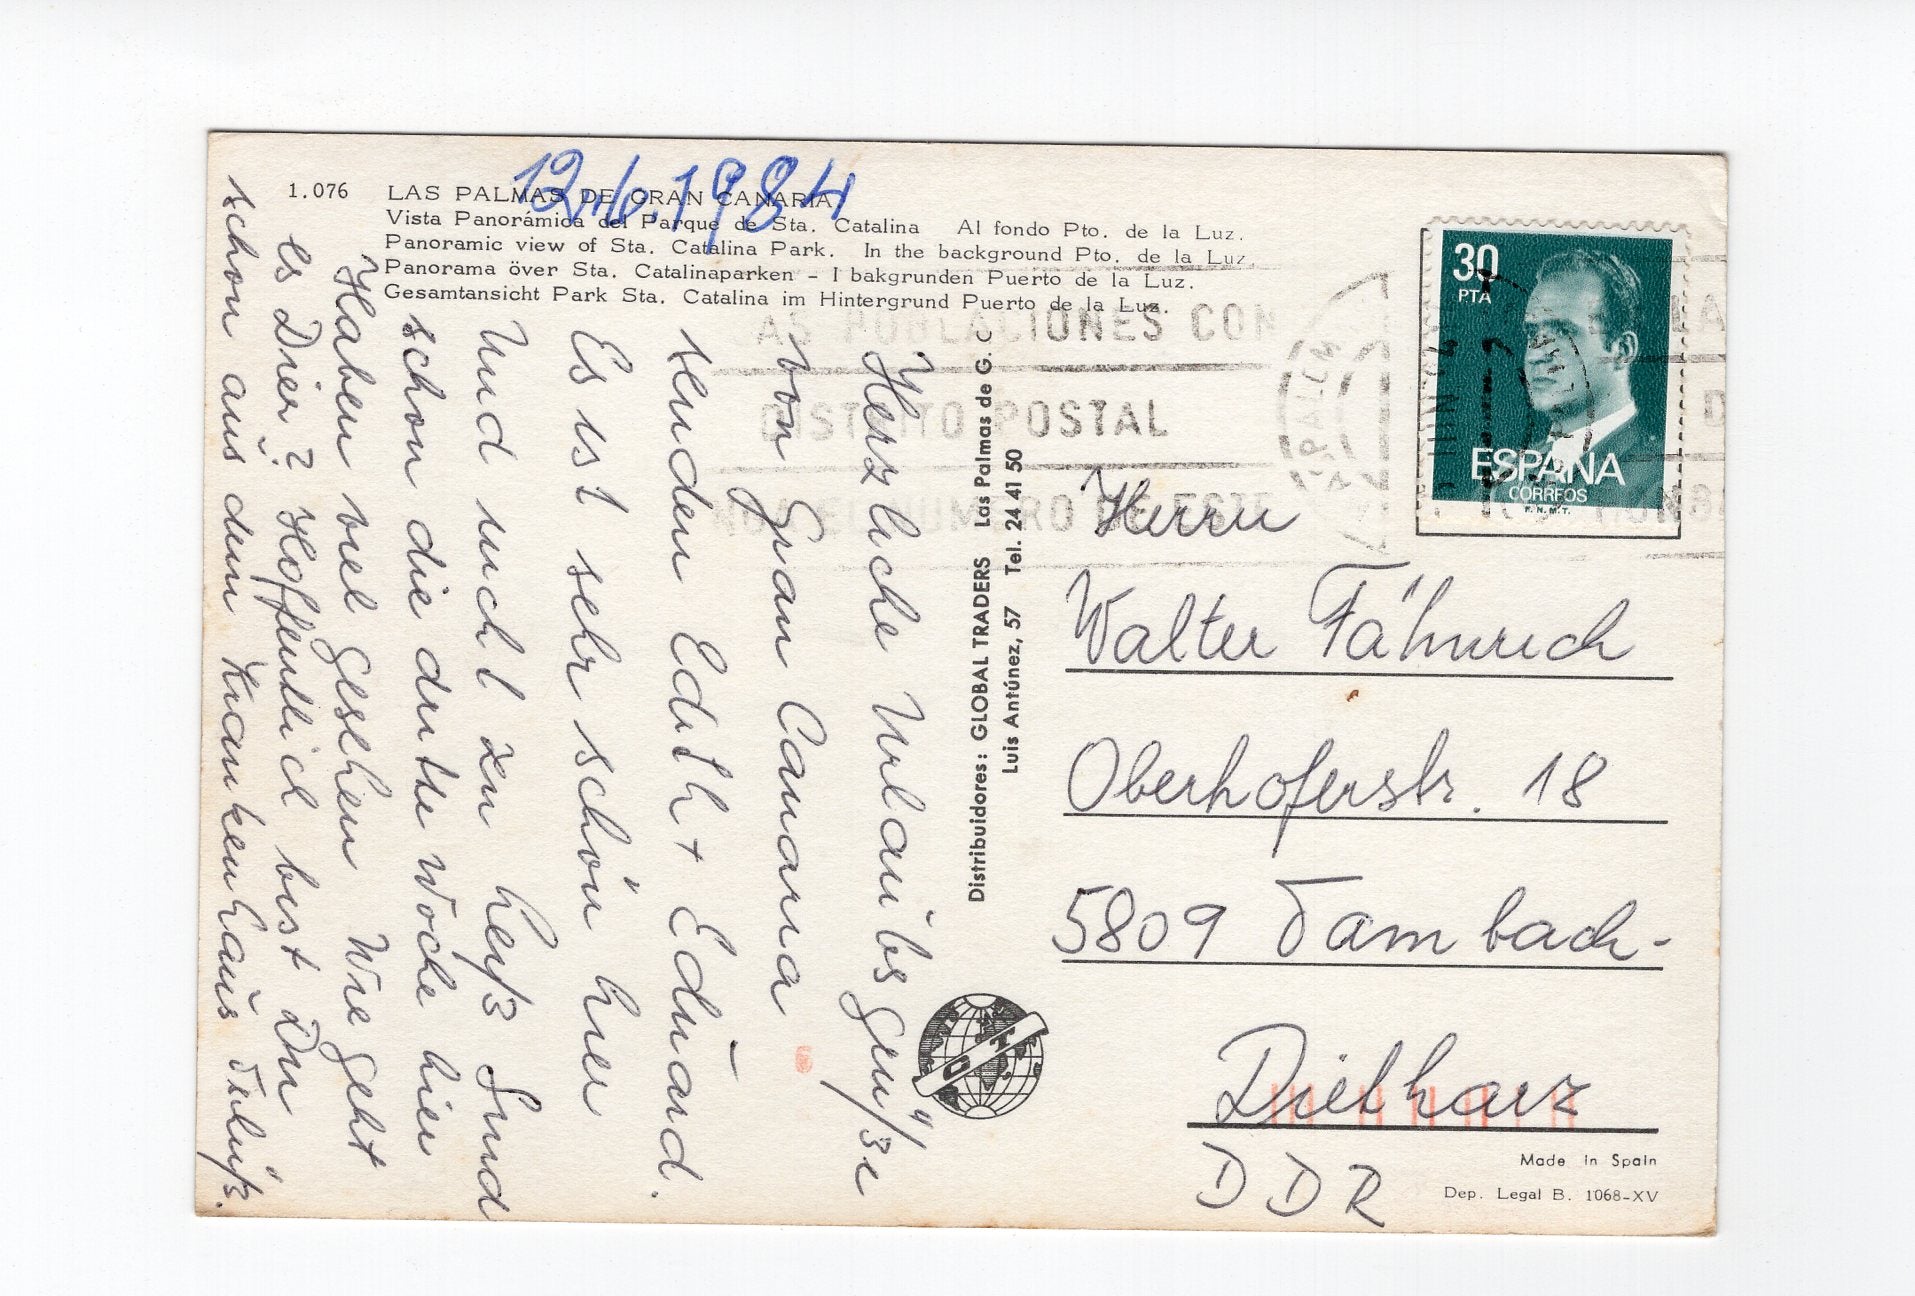 12.6.1984
1.076 LAS PALMAS DE GRAN CANARIA
Vista Panorámica del Parque de Sta. Catalina Al fondo Pto. de la Luz.
Panoramic view of Sta. Catalina Park. In the background Pto. de la Luz.
Panorama över Sta. Catalinaparken - I bakgrunden Puerto de la Luz.
Gesamtansicht Park Sta. Catalina im Hintergrund Puerto de la Luz.
Herzliche Urlaubsgrüße
von Gran Canaria
senden Edith + Eduard.
Es ist sehr schön hier
und nicht zu heiß Sind
schon die dritte Woche hier
Haben viel gesehen Wie geht
es Dier? Hoffentlich bist Du
schon aus dem Krankenhaus
Distribuidores: GLOBAL TRADERS Las Palmas de G. C
Luis Antúnez, 57 Tel. 24 41 50
30
PTA
ESPAÑA
CORREOS
F.N.M.T.
AS POBLACIONES CON
DISTRITO POSTAL
NUMERO DE ESTE
Herrn
Walter Fähnrich
Oberhoferstr. 18
5809 Tambach-
Dietharz
DDR
Made in Spain
Dep. Legal B. 1068-XV